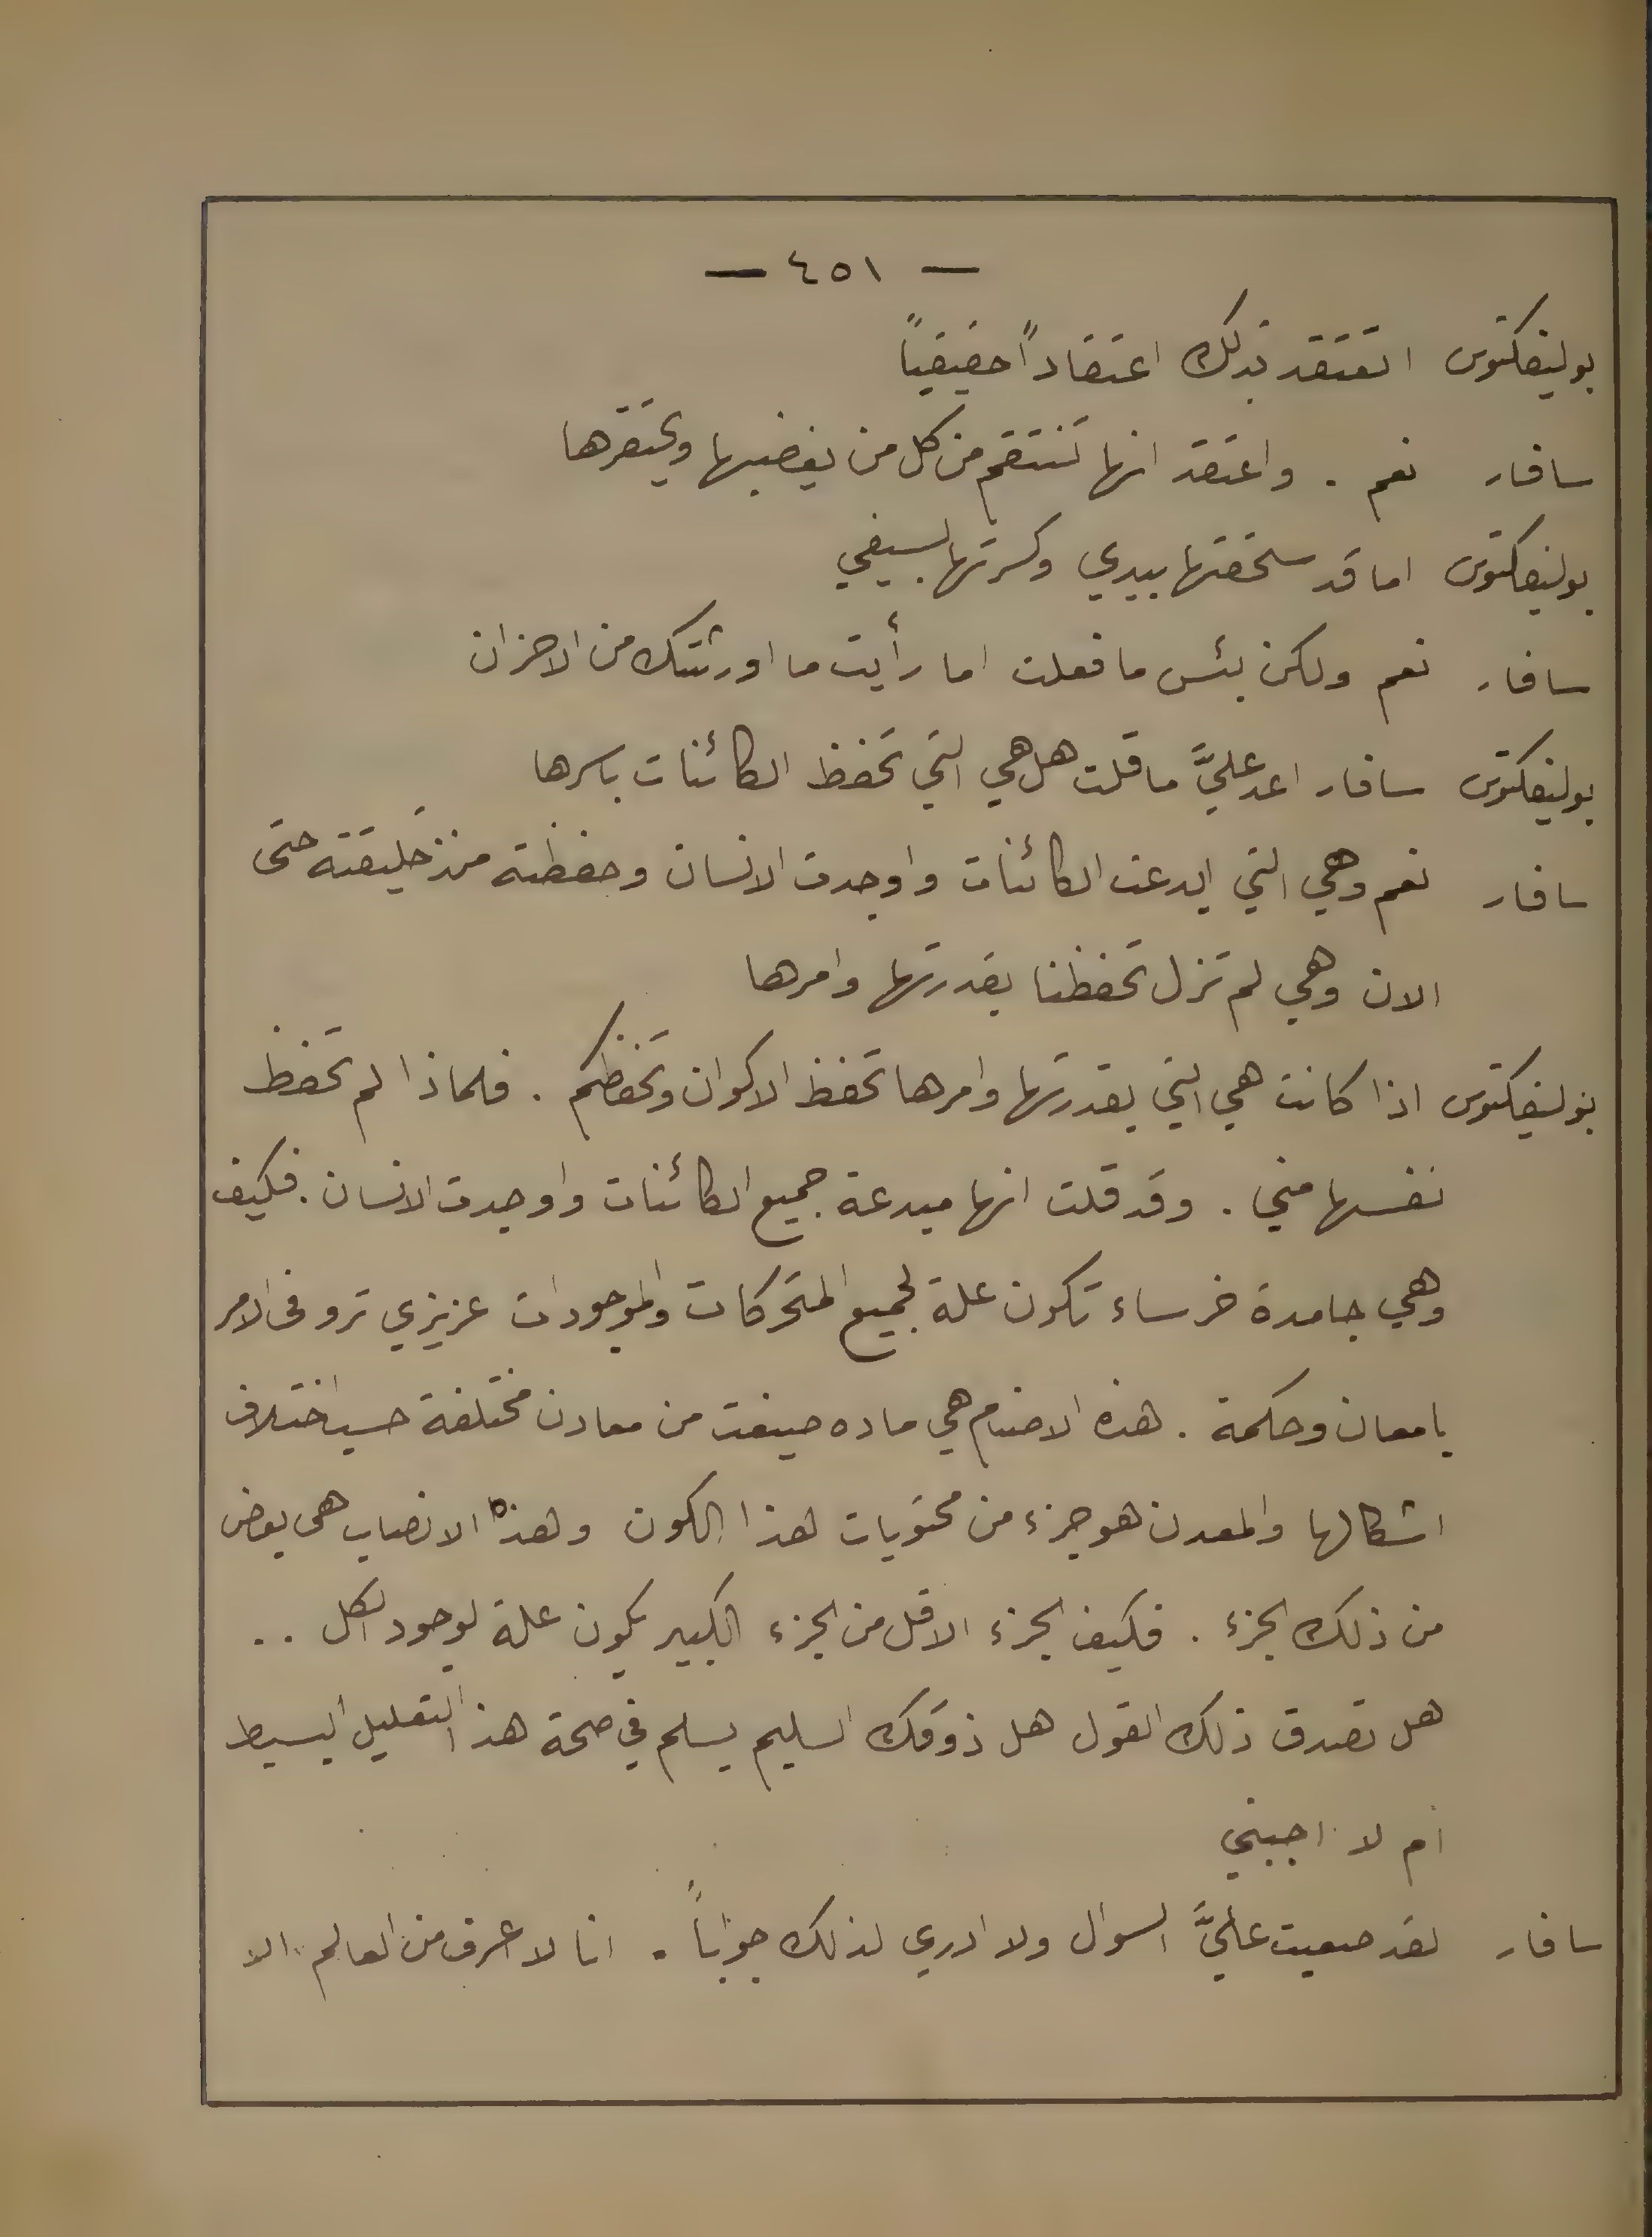 — ٤٥١ —
بوليفكتوس اتعتقد بذلك اعتقاداً حقيقياً
سافار نعم . واعتقد انها تنتقم من كل من يغضبها ويحتقرها
بوليفكتوس اما قد سحقتها بيدي وكسرتها بسيفي
سافار نعم ولكن بئس ما فعلت اما رأيت ما اورثتك من الاحزان
بوليفكتوس سافار اعد عليَّ ما قلت هل هي التي تحفظ الكائنات باسرها
سافار نعم وهي التي ابدعت الكائنات واوجدت الانسان وحفظته منذ خليقته حتى
الان وهي لم تزل تحفظنا بقدرتها وامرها
بوليفكتوس اذا كانت هي التي بقدرتها وامرها تحفظ الاكوان وتحفظكم . فلماذا لم تحفظ
نفسها مني . وقد قلت انها مبدعة جميع الكائنات واوجدت الانسان . فكيف
وهي جامدة خرساء تكون علة لجميع المتحركات والموجودات عزيزي ترو فى الامر
بامعان وحكمة . هذه الاصنام هي ماده صيغت من معادن مختلفة حسب اختلاف
اشكالها والمعدن هو جزء من محتويات هذا الكون وهذه الانصاب هى بعض
من ذلك الجزء . فكيف الجزء الاقل من الجزء الكبير يكون علة لوجود الكل ..
هل تصدق ذلك القول هل ذوقك السليم يسلم في صحة هذا التعليل البسيط
ام لا اجبني
سافار لقد صعبت عليَّ السوال ولا ادري لذلك جواباً . انا لا اعرف من العالم الا